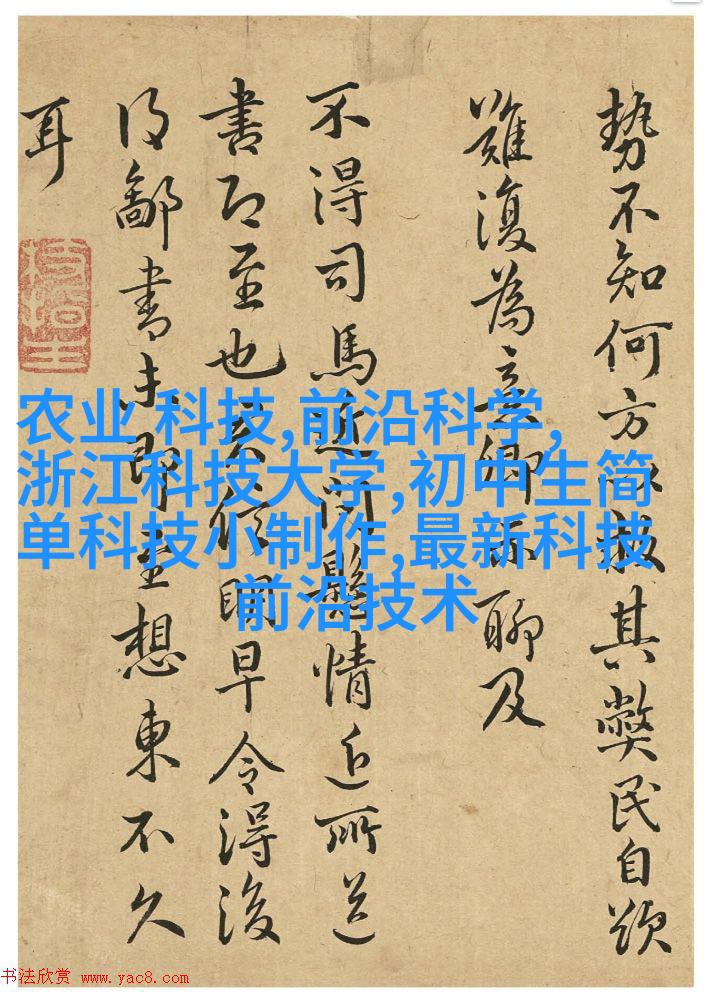 勢不知何方以救其弊民自煩
難復為意卿示聊及
不得司馬近問懸情近所送
書即至也信明早令得後
得鄙書未即至想東不久
耳
农业 科技,前沿科学,
浙江科技大学,初中生简
单科技小制作,最新科技
前沿技术
书法欣赏 www.yac8.com